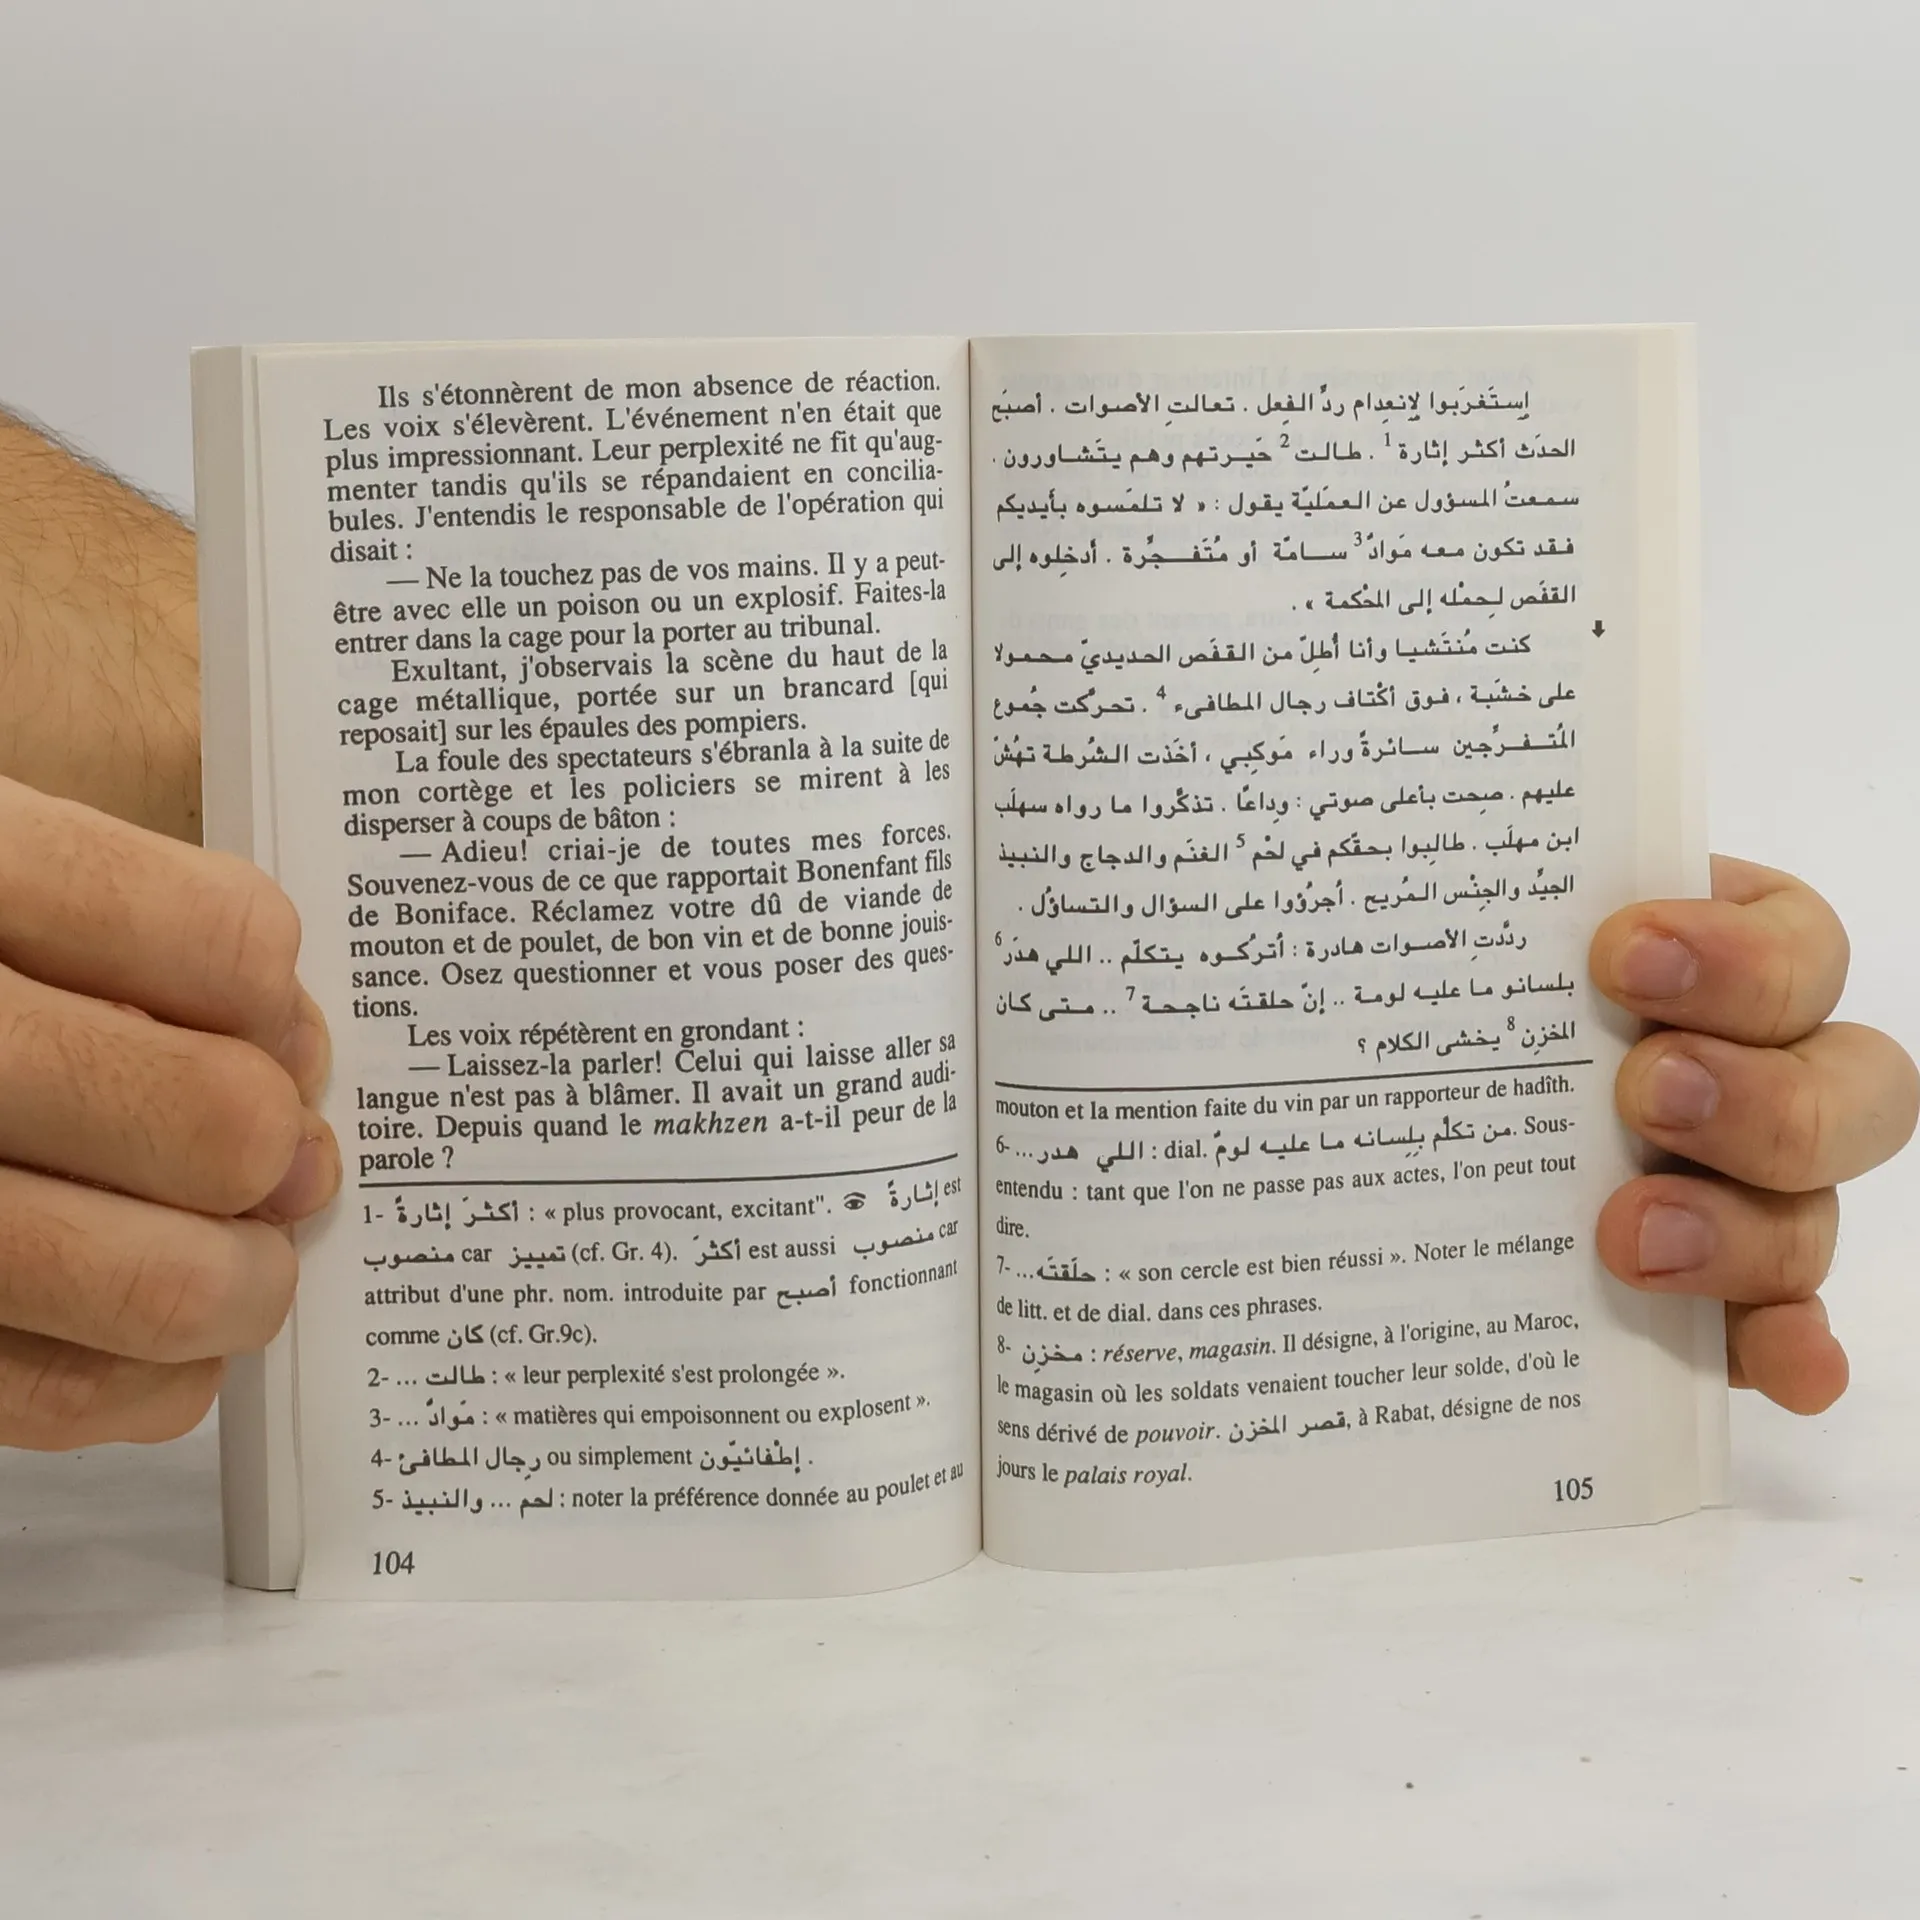 Ils s'étonnèrent de mon absence de réaction.
Les voix s'élevèrent. L'événement n'en était que
plus impressionnant. Leur perplexité ne fit qu'aug-
menter tandis qu'ils se répandaient en concilia-
bules. J'entendis le responsable de l'opération qui
disait :
— Ne la touchez pas de vos mains. Il y a peut-
être avec elle un poison ou un explosif. Faites-la
entrer dans la cage pour la porter au tribunal.
Exultant, j'observais la scène du haut de la
cage métallique, portée sur un brancard [qui
reposait] sur les épaules des pompiers.
La foule des spectateurs s'ébranla à la suite de
mon cortège et les policiers se mirent à les
disperser à coups de bâton :
— Adieu! criai-je de toutes mes forces.
Souvenez-vous de ce que rapportait Bonenfant fils
de Boniface. Réclamez votre dû de viande de
mouton et de poulet, de bon vin et de bonne jouis-
sance. Osez questionner et vous poser des ques-
tions.
Les voix répétèrent en grondant :
— Laissez-la parler! Celui qui laisse aller sa
langue n'est pas à blâmer. Il avait un grand audi-
toire. Depuis quand le makhzen a-t-il peur de la
parole ?
1- أكثرَ إثارةً : « plus provocant, excitant". إثارةً est
منصوب car تمييز (cf. Gr. 4). أكثرَ est aussi منصوب car
attribut d'une phr. nom. introduite par أصبح fonctionnant
comme كان (cf. Gr.9c).
2- ... طالت : « leur perplexité s'est prolongée ».
3- ... مَوادُّ : « matières qui empoisonnent ou explosent ».
4- رِجال المطافئ ou simplement إطْفائيّون .
5- لحم ... والنبيذ : noter la préférence donnée au poulet et au
104
إستَغرَبوا لإنعِدام ردُّ الفِعل . تعالتِ الأصوات . أصبَح
الحدَث أكثر إثارة 1 . طالت 2 حَيرتهم وهم يتَشاورون .
سمعتُ المسؤول عن العمَليّة يقول : « لا تلمَسوه بأيديكم
فقد تكون معه مَوادُّ 3 سامّة أو مُتَفجِّرة . أدخِلوه إلى
القفَص لِحمْله إلى المحْكمة » .
كنت مُنتَشيا وأنا أُطِلّ من القفَص الحديديّ محمولا
على خشَبة ، فوق أكْتاف رجال المطافىء 4 . تحرّكت جُموع
المُتفرِّجين سائرةً وراء مَوكِبي ، أخَذت الشُرطة تهُشّ
عليهم . صِحت بأعلى صوتي : وِداعًا . تذكَّروا ما رواه سهلَب
ابن مهلَب . طالِبوا بحقّكم في لحْم 5 الغنَم والدجاج والنبيذ
الجيِّد والجِنْس المُريح . أُجرُؤوا على السؤال والتساؤل .
ردَّدتِ الأصوات هادرة : أُتركوه يتكلّم .. اللي هدَر 6
بلسانو ما عليه لومة .. إنّ حلقتَه ناجحة 7 .. متى كان
المخزن 8 يخشى الكلام ؟
mouton et la mention faite du vin par un rapporteur de hadîth.
6- ...اللي هدر : dial. من تكلّم بِلِسانه ما عليه لومٌ. Sous-
entendu : tant que l'on ne passe pas aux actes, l'on peut tout
dire.
7- ...حلَقتَه : « son cercle est bien réussi ». Noter le mélange
de litt. et de dial. dans ces phrases.
8- مخزِن : réserve, magasin. Il désigne, à l'origine, au Maroc,
le magasin où les soldats venaient toucher leur solde, d'où le
sens dérivé de pouvoir. قصر المخزن, à Rabat, désigne de nos
jours le palais royal.
105